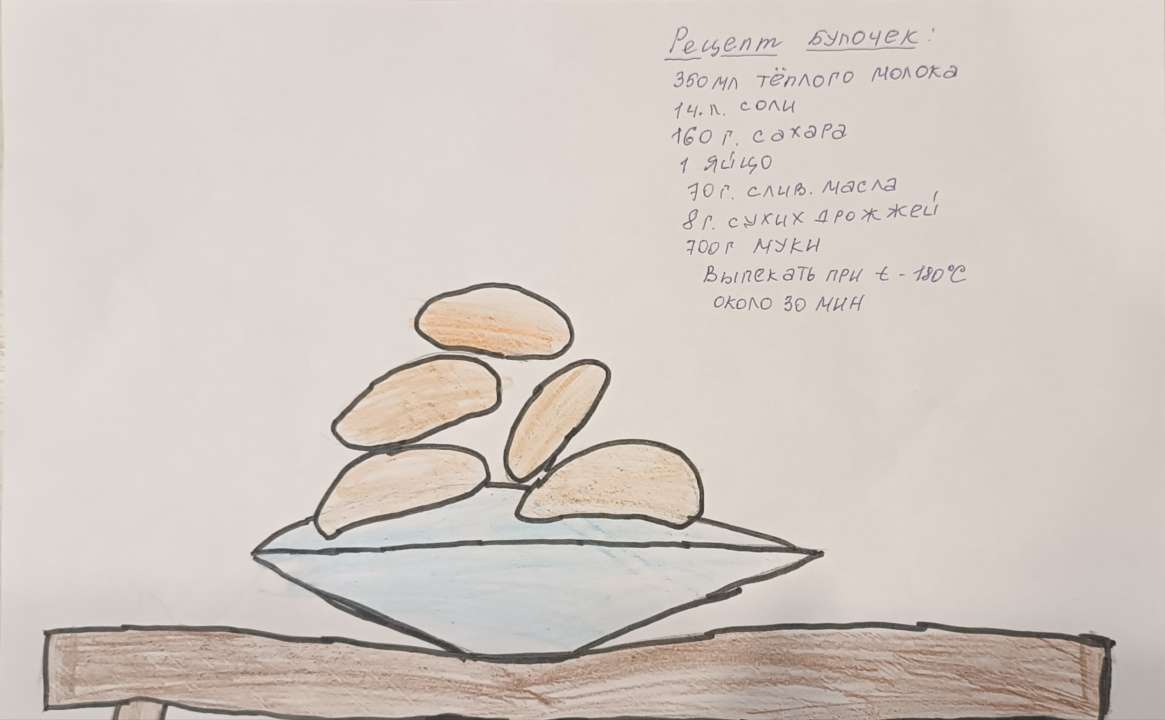 Рецепт булочек:
350 мл тёплого молока
1 ч.л. соли
160 г. сахара
1 яйцо
70 г. слив. масла
8 г. сухих дрожжей
700 г муки
Выпекать при t - 180°C
около 30 мин